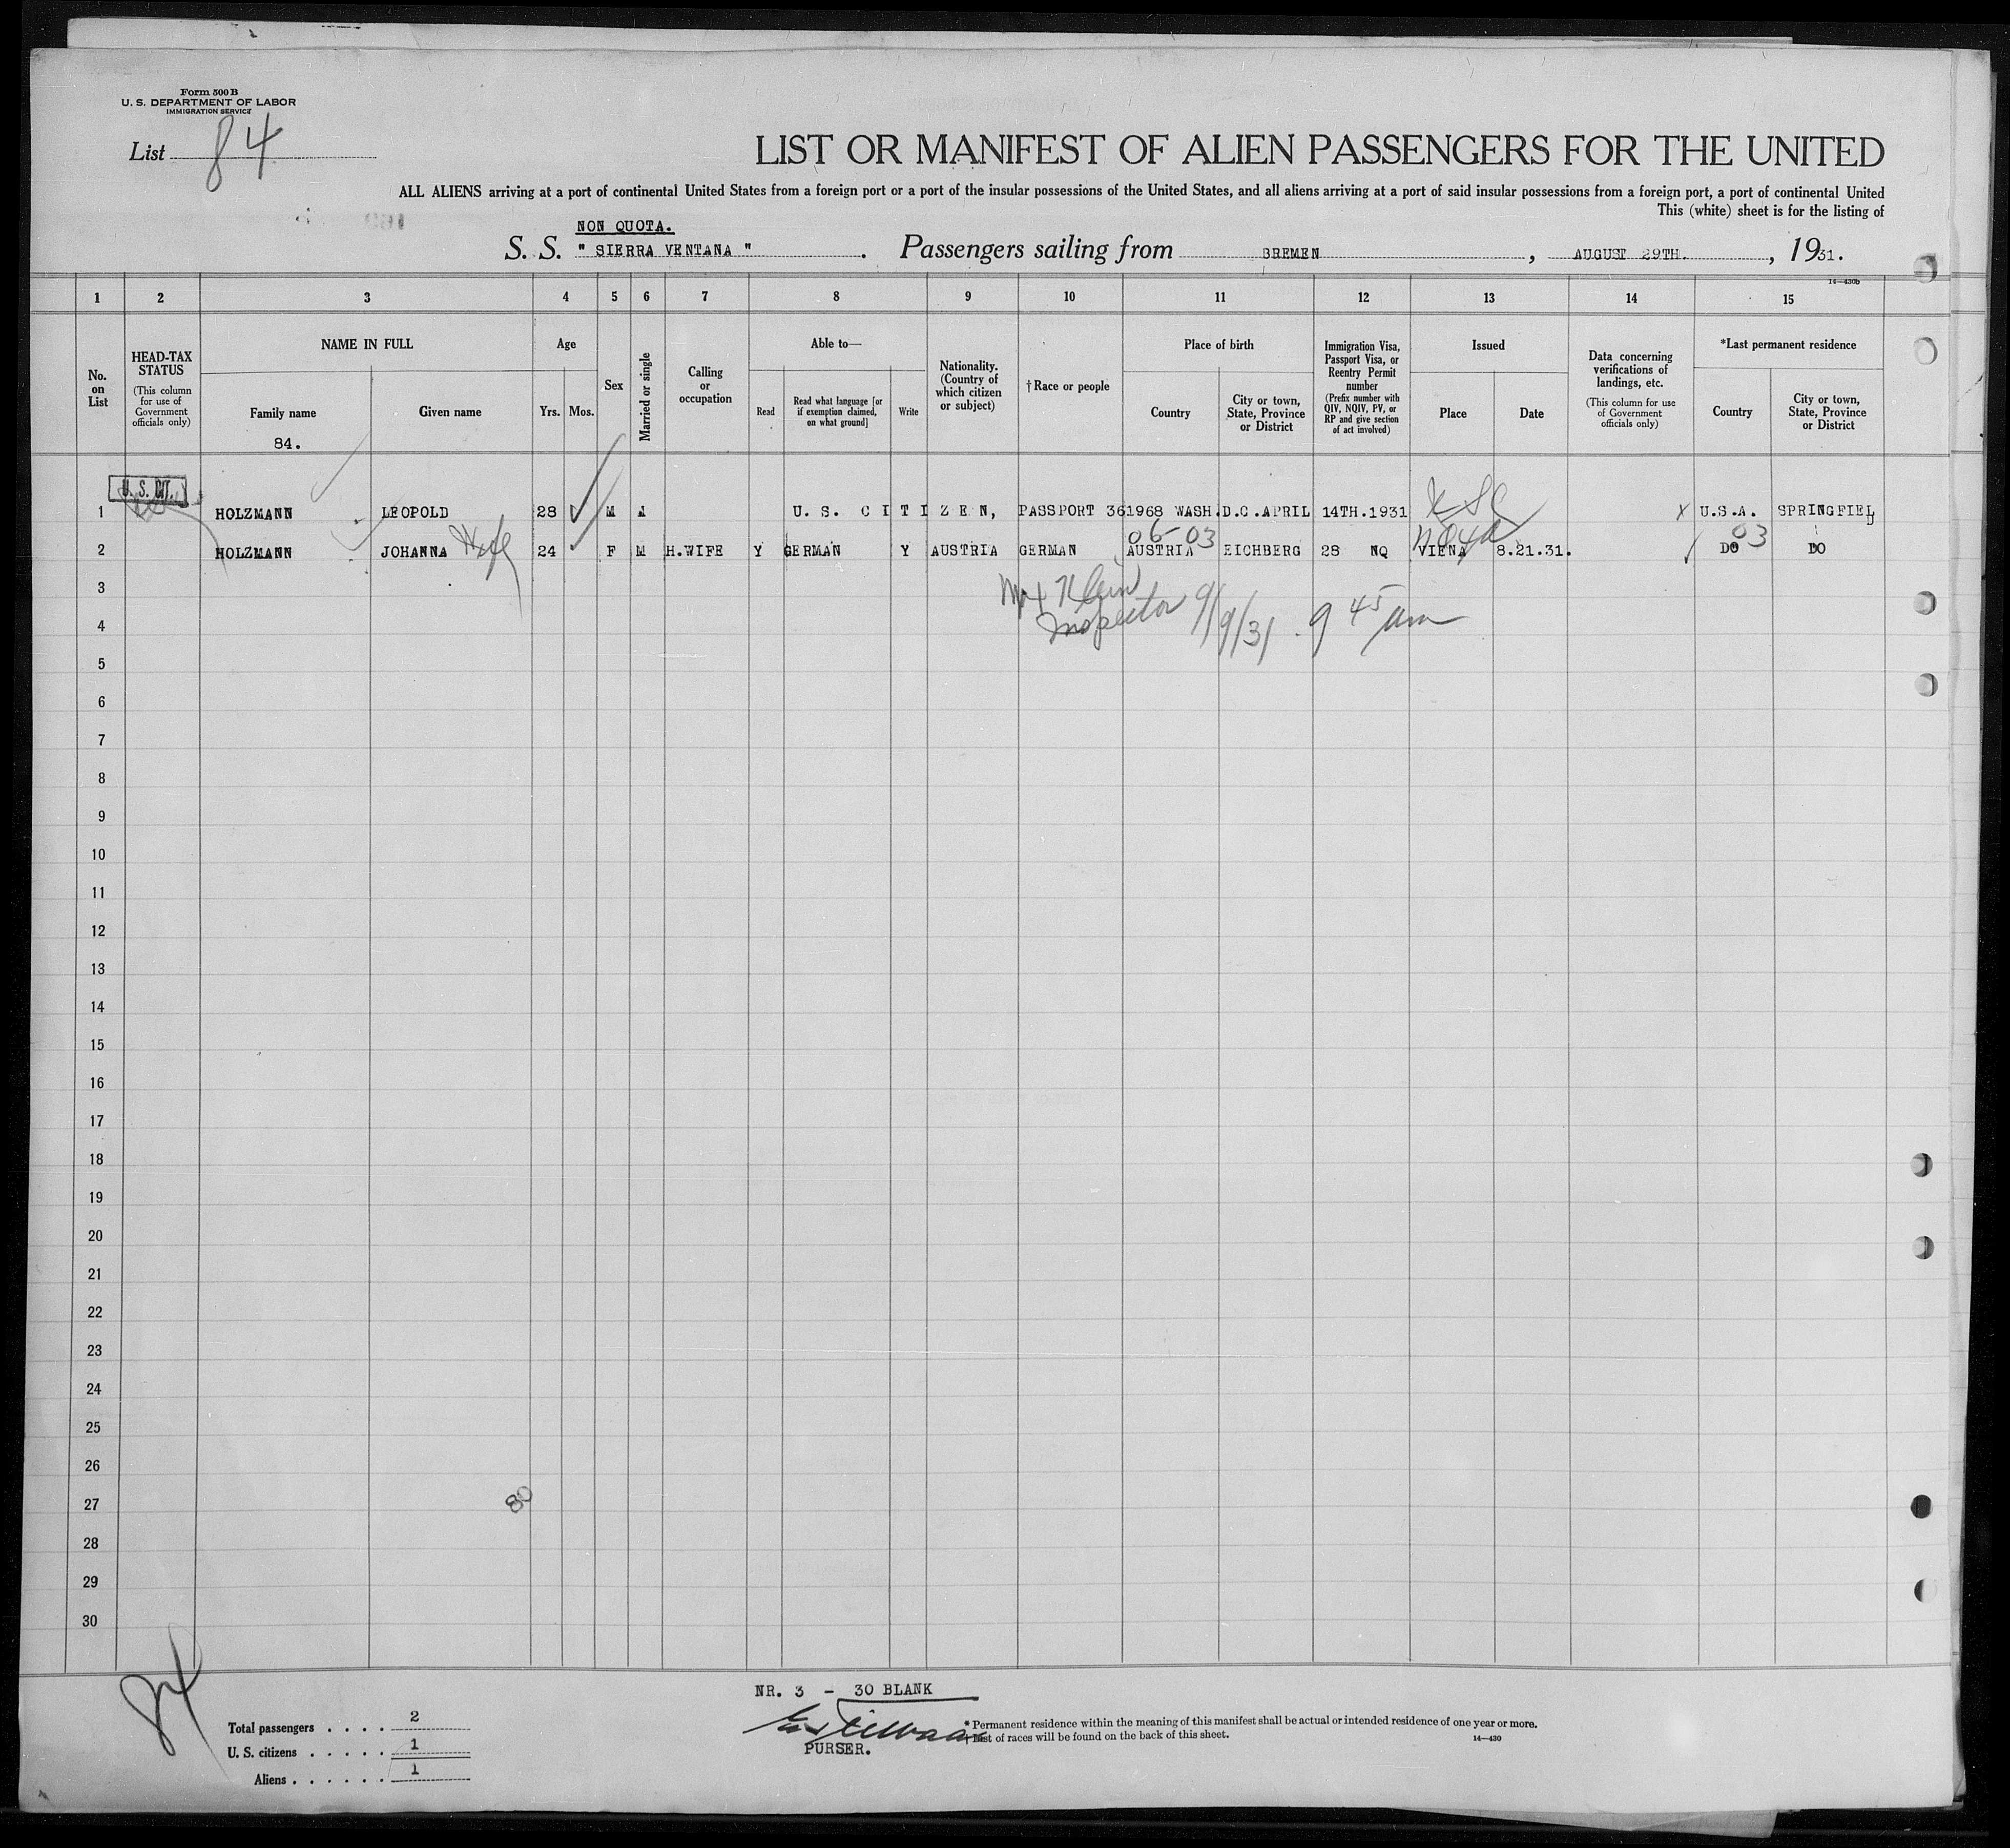 Form 500 B
U. S. DEPARTMENT OF LABOR
IMMIGRATION SERVICE
List 84
LIST OR MANIFEST OF ALIEN PASSENGERS FOR THE UNITED
ALL ALIENS arriving at a port of continental United States from a foreign port or a port of the insular possessions of the United States, and all aliens arriving at a port of said insular possessions from a foreign port, a port of continental United
This (white) sheet is for the listing of
NON QUOTA.
S. S. " SIERRA VENTANA ". Passengers sailing from BREMEN, AUGUST 29TH., 1931.
14—430b
1 2 3 4 5 6 7 8 9 10 11 12 13 14 15
No. on List
HEAD-TAX STATUS (This column for use of Government officials only)
NAME IN FULL
Family name
Given name
84.
Age
Yrs. Mos.
Sex
Married or single
Calling or occupation
Able to—
Read
Read what language [or if exemption claimed, on what ground]
Write
Nationality. (Country of which citizen or subject)
†Race or people
Place of birth
Country
City or town, State, Province or District
Immigration Visa, Passport Visa, or Reentry Permit number (Prefix number with QIV, NQIV, PV, or RP and give section of act involved)
Issued
Place
Date
Data concerning verifications of landings, etc. (This column for use of Government officials only)
*Last permanent residence
Country
City or town, State, Province or District
U. S. CIT.
1 HOLZMANN LEOPOLD 28 M U. S. C I T I Z E N, PASSPORT 361968 WASH.D.C.APRIL 14TH.1931 X U.S.A. SPRINGFIELD
06-03 03
2 HOLZMANN JOHANNA Wife 24 F M H.WIFE Y GERMAN Y AUSTRIA GERMAN AUSTRIA EICHBERG 28 NQ VIENA 8.21.31. DO DO
3 Klein
4 Inspector 9/9/31. 9 45 am
5
6
7
8
9
10
11
12
13
14
15
16
17
18
19
20
21
22
23
24
25
26
27 80
28
29
30
84
NR. 3 - 30 BLANK
PURSER.
Total passengers . . . . 2
U. S. citizens . . . . . 1
Aliens . . . . . . 1
* Permanent residence within the meaning of this manifest shall be actual or intended residence of one year or more.
†List of races will be found on the back of this sheet.
14—430